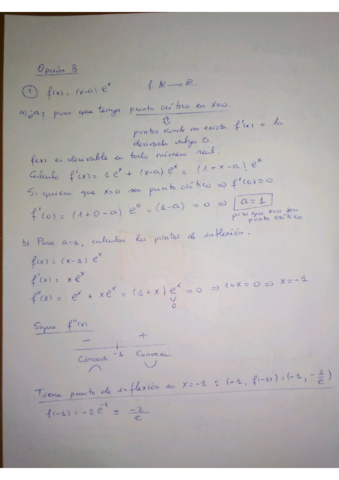 Opción B
① f(x) = (x-a) eˣ f: ℝ → ℝ.
a) ¿a? para que tenga punto crítico en x=0
puntos donde no existe f'(x) o la
derivada valga 0.
f(x) es derivable en todo número real.
Calculo f'(x) = 1 eˣ + (x-a) eˣ = (1+x-a) eˣ
Si quiero que x=0 sea punto crítico ⇒ f'(0)=0
f'(0) = (1+0-a) e⁰ = (1-a) = 0 ⇒ a=1
para que x=0 sea
punto crítico
b) Para a=1, calcular los puntos de inflexión.
f(x) = (x-1) eˣ
f'(x) = x eˣ
f''(x) = eˣ + x eˣ = (1+x) eˣ = 0 ⇒ 1+x=0 ⇒ x=-1
0
Signo f''(x)
- +
-1
Cóncava Convexa
Tiene punto de inflexión en x=-1 : (-1, f(-1)) = (-1, -2/e)
f(-1) = -2 e⁻¹ = -2/e